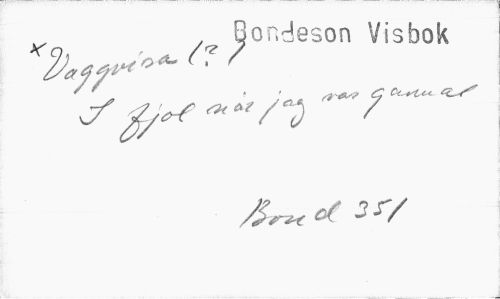 Bondeson Visbok
x Vaggvisa (?)
I fjol när jag var gammal
Bond 351